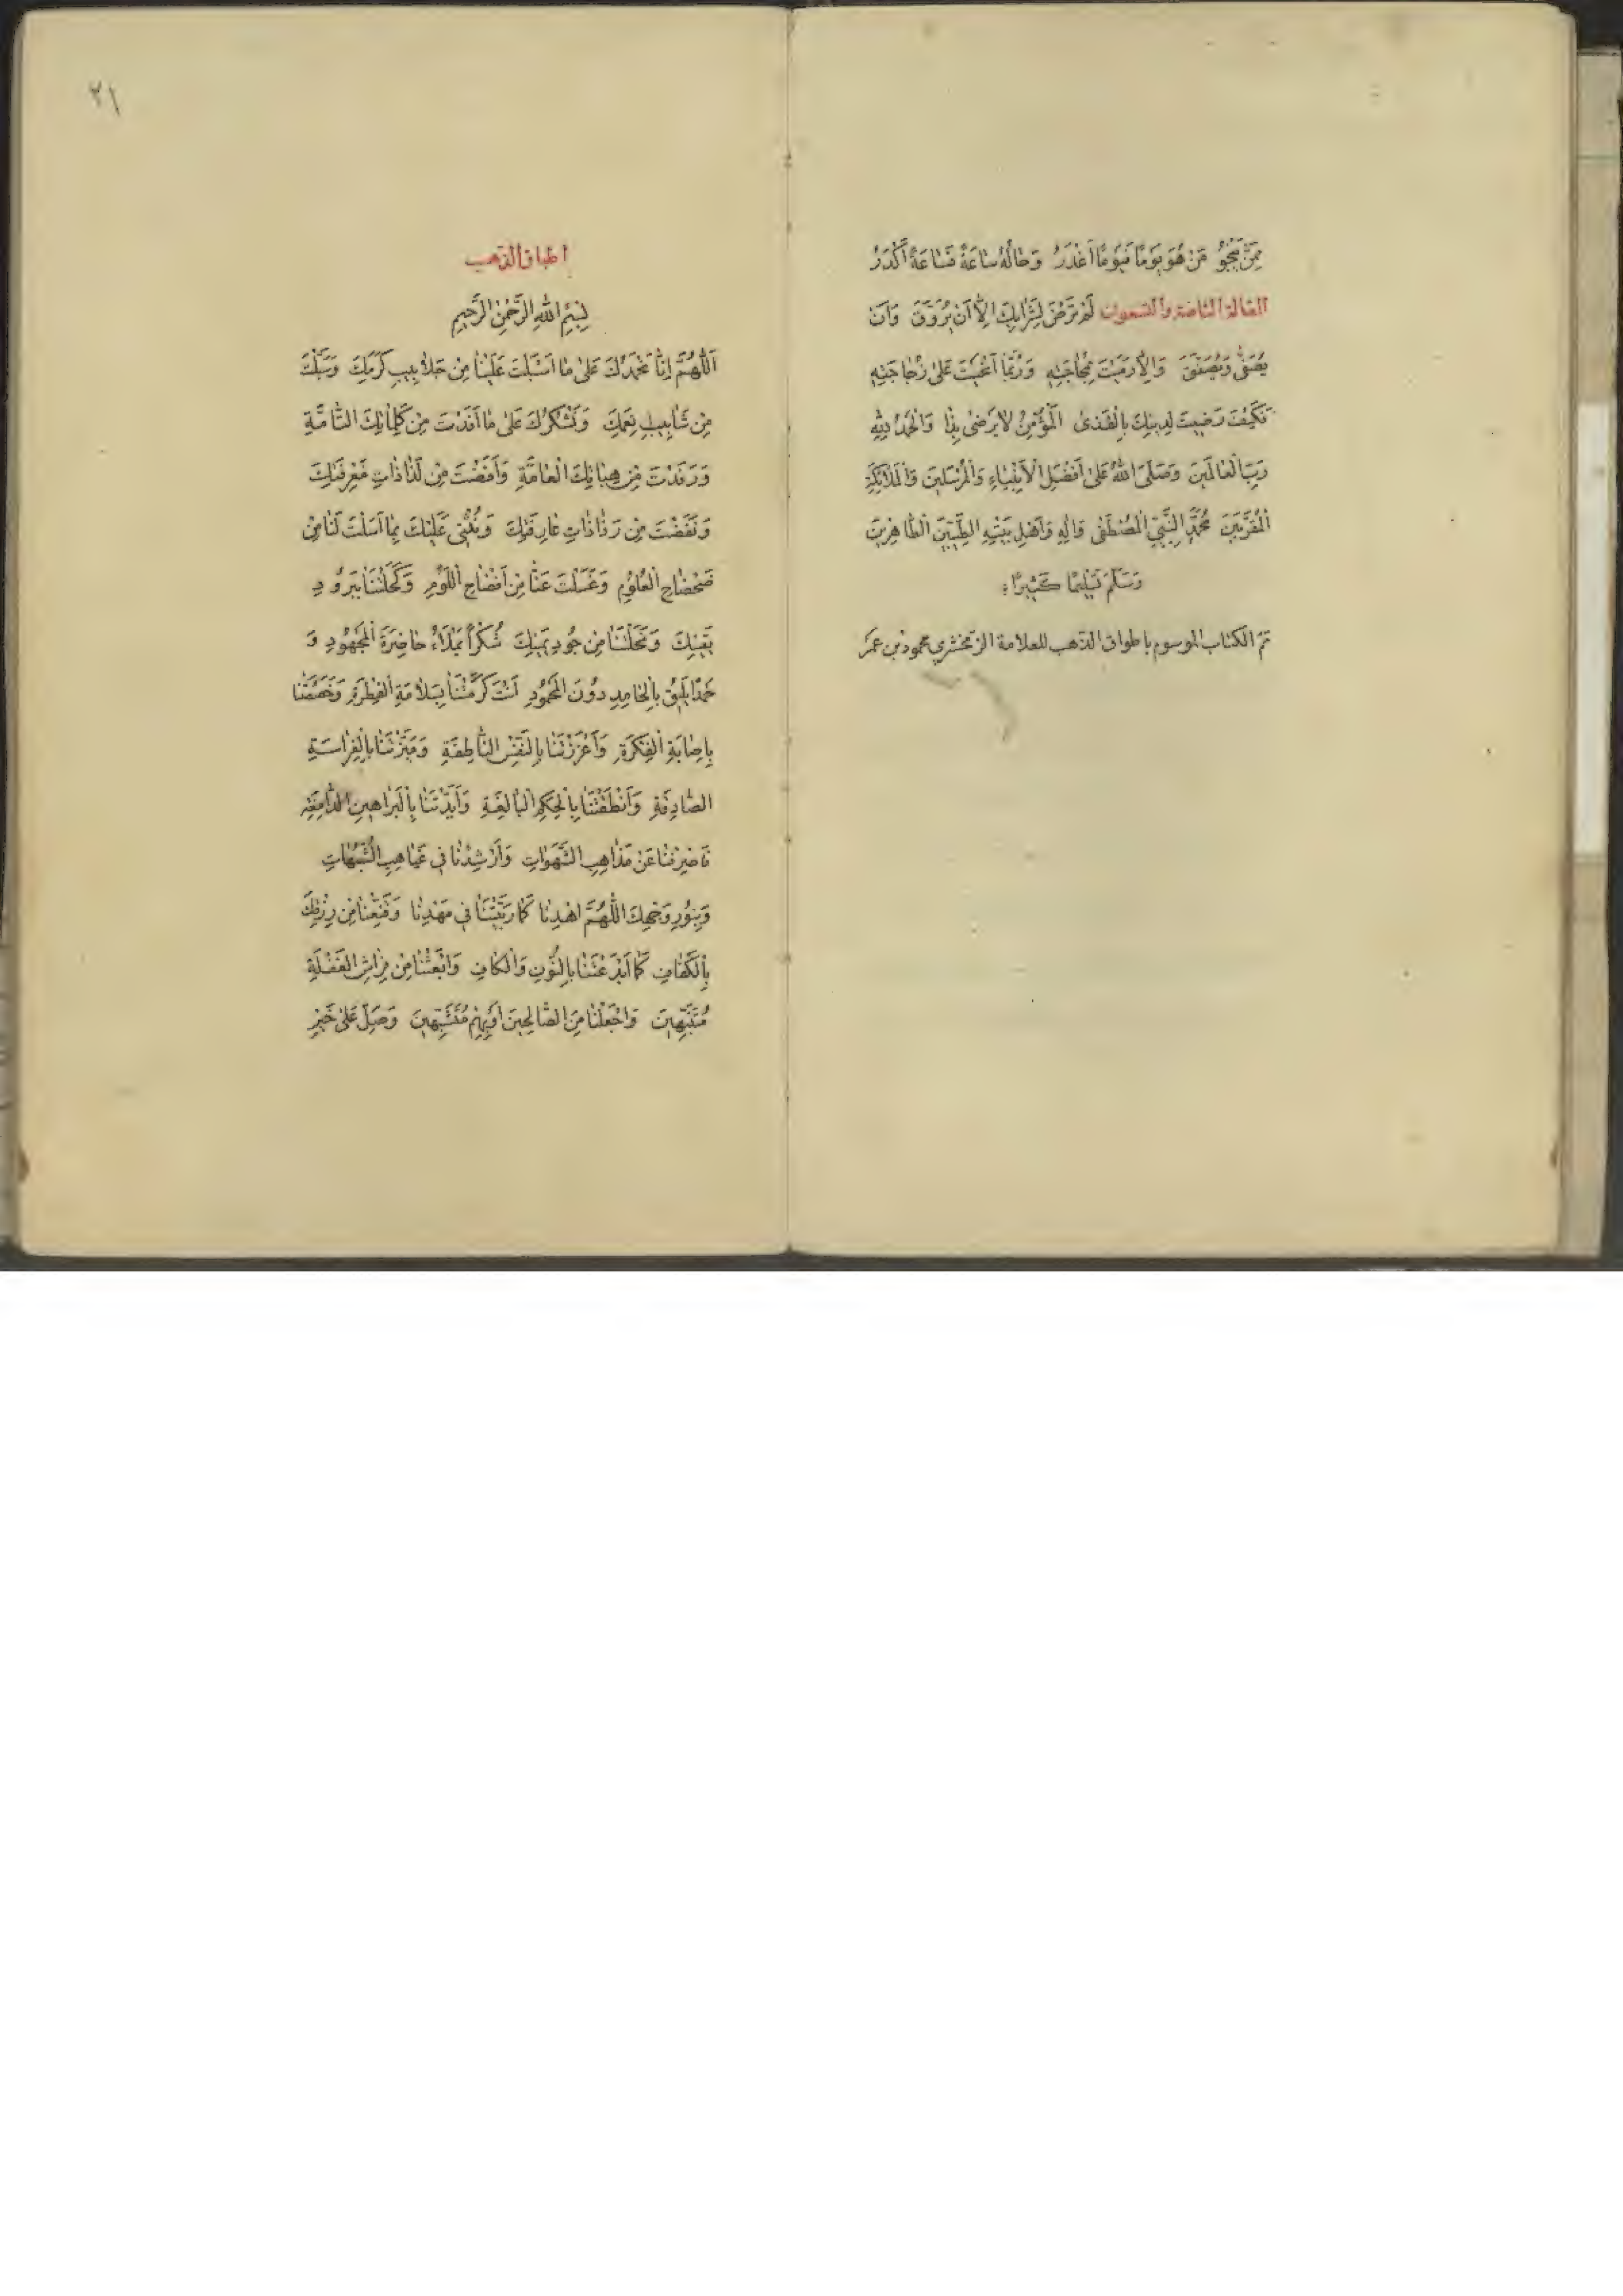 مِمَّنْ يَنْجُو مَنْ هُوَ يَوْمًا فَيَوْمًا اَغْدَرُ وَحَالُهُ سَاعَةً فَسَاعَةً اَكْدَرُ
المقالة الثامنة والتسعون لَمْ تَرْضَ لِشَرَابِكَ اِلَّا اَنْ يُرَوَّقَ وَاَنْ
يُصَفّٰى وَيُصَفَّقَ وَاِلَّا رَمَيْتَ بِمُجَاجَتِهِ وَرُبَّمَا اَنْحَيْتَ عَلٰى زُجَاجَتِهِ
فَكَيْفَ رَضِيتَ لِدِينِكَ بِالْقَذٰى اَلْمُؤْمِنُ لَا يَرْضٰى بِذَا وَالْحَمْدُ لِلّٰهِ
رَبِّ الْعَالَمِينَ وَصَلَّى اللّٰهُ عَلٰى اَفْضَلِ الْاَنْبِيَاءِ وَالْمُرْسَلِينَ وَالْمَلَائِكَةِ
الْمُقَرَّبِينَ مُحَمَّدٍ النَّبِيِّ الْمُصْطَفٰى وَاٰلِهِ وَاَهْلِ بَيْتِهِ الطَّيِّبِينَ الطَّاهِرِينَ
وَسَلَّمَ تَسْلِيمًا كَثِيرًا
تمّ الكتاب الموسوم باطواق الذهب للعلامة الزمخشري محمود بن عمر
٢١
اطباق الذهب
بِسْمِ اللّٰهِ الرَّحْمٰنِ الرَّحِيمِ
اَللّٰهُمَّ اِنَّا نَحْمَدُكَ عَلٰى مَا اَسْبَلْتَ عَلَيْنَا مِنْ جَلَابِيبِ كَرَمِكَ وَسَبَّلْتَ
مِنْ شَآبِيبِ نِعَمِكَ وَنَشْكُرُكَ عَلٰى مَا اَفَدْتَ مِنْ كَلِمَاتِكَ التَّامَّةِ
وَرَفَدْتَ مِنْ هِبَاتِكَ الْعَامَّةِ وَاَفَضْتَ مِنْ لَذَاذَاتِ مَعْرِفَتِكَ
وَنَفَضْتَ مِنْ رَذَاذَاتِ عَارِفَتِكَ وَنُثْنِى عَلَيْكَ بِمَا اَسَلْتَ لَنَا مِنْ
ضَحْضَاحِ الْعُلُومِ وَغَسَلْتَ عَنَّا مِنْ اَوْضَاحِ اللَّوْمِ وَكَحَلْتَنَا بِبَرُودِ
يَقِينِكَ وَنَحَلْتَنَا مِنْ جُودِ يَمِينِكَ شُكْرًا يَمْلَاُ حَاضِرَةَ الْمَجْهُودِ وَ
حَمْدًا يَلِيقُ بِالْحَامِدِ دُونَ الْمَحْمُودِ اَنْتَ كَرَّمْتَنَا بِسَلَامَةِ الْفِطْرَةِ وَخَصَصْتَنَا
بِاِصَابَةِ الْفِكْرَةِ وَاَعْزَزْتَنَا بِالنَّفْسِ النَّاطِقَةِ وَمَيَّزْتَنَا بِالْفِرَاسَةِ
الصَّادِقَةِ وَاَنْطَقْتَنَا بِالْحِكَمِ الْبَالِغَةِ وَاَيَّدْتَنَا بِالْبَرَاهِينِ الدَّامِغَةِ
فَاصْرِفْنَا عَنْ مَذَاهِبِ الشَّهَوَاتِ وَاَرْشِدْنَا فِى غَيَاهِبِ الشُّبُهَاتِ
وَبِنُورِ وَجْهِكَ اللّٰهُمَّ اهْدِنَا كَمَا رَبَّيْتَنَا فِى مَهْدِنَا وَقَنِّعْنَا مِنْ رِزْقِكَ
بِالْكَفَافِ كَمَا اَبْدَعْتَنَا بِالنُّونِ وَالْكَافِ وَابْعَثْنَا مِنْ فِرَاشِ الْغَفْلَةِ
مُتَنَبِّهِينَ وَاجْعَلْنَا مِنَ الصَّالِحِينَ اَوْ بِهِمْ مُتَشَبِّهِينَ وَصَلِّ عَلٰى خَيْرِ